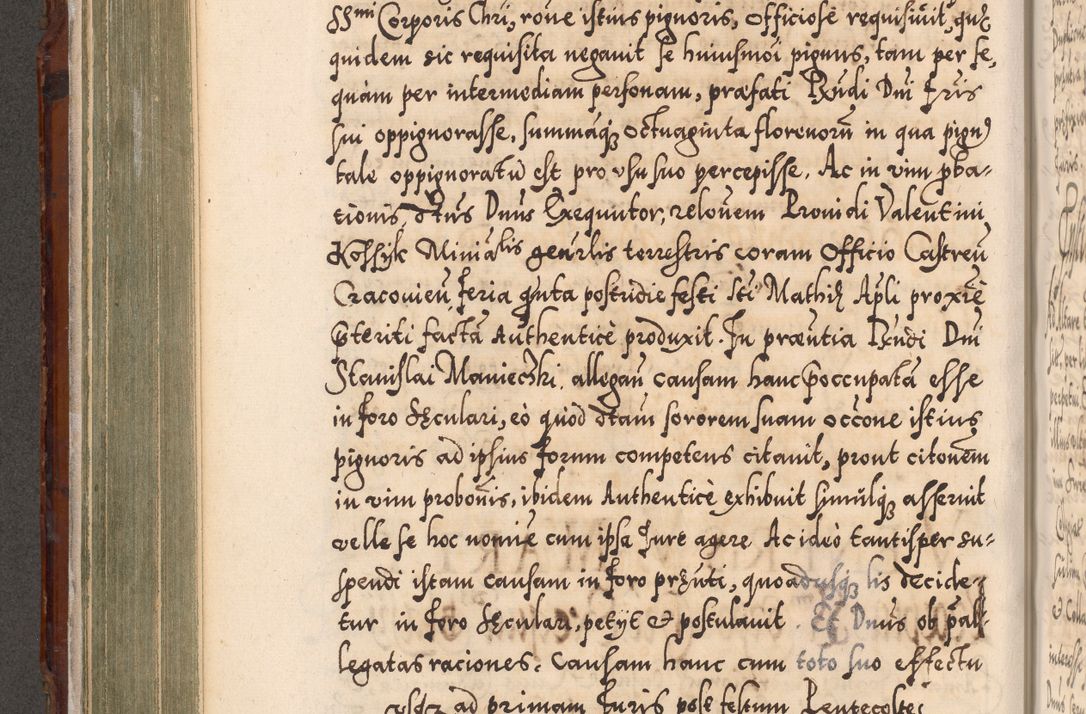 SSmi Corporis Chri, rõne istius pignoris, officiosè requisiuit, quę
quidem sic requisita negauit se huiusmõi pignus, tam per se,
quàm per intermediam personam, præfati Rndi Dni Fris
sui oppignorasse, summãq; octuaginta florenorũ in qua pign9
tale oppignoratũ est pro vsu suo percepisse. Ac in vim proba-
tionis, dtus Dnus Exequutor, relõnem Prouidi Valentini
Kossyk Ministlis genrlis terrestris coram Officio Castreñ
Cracouieñ, feria quinta postridie festi Sti Mathię Apli proxiẽ
pteriti factã Authenticè produxit. In præntia Rndi Dni
Stanislai Maniecżki, allegañ causam hanc pçoccupatã esse
in foro sęculari, eò quòd dtam sororem suam occõne istius
pignoris ad ipsius forum competens citauit, prout citõnem
in vim probõnis, ibidem Authenticè exhibuit simulq; asseruit
velle se hoc noĩe cum ipsa Jure agere. Ac ideò tantisper su-
spendi istam causam in foro pręnti, quoadusq; lis decide-
tur in foro sęculari, petyt et postulauit. Et Dnus ob pal-
legatas raciones, causam hanc cum toto suo effectu
ad primam Juris post festum Pentecostes